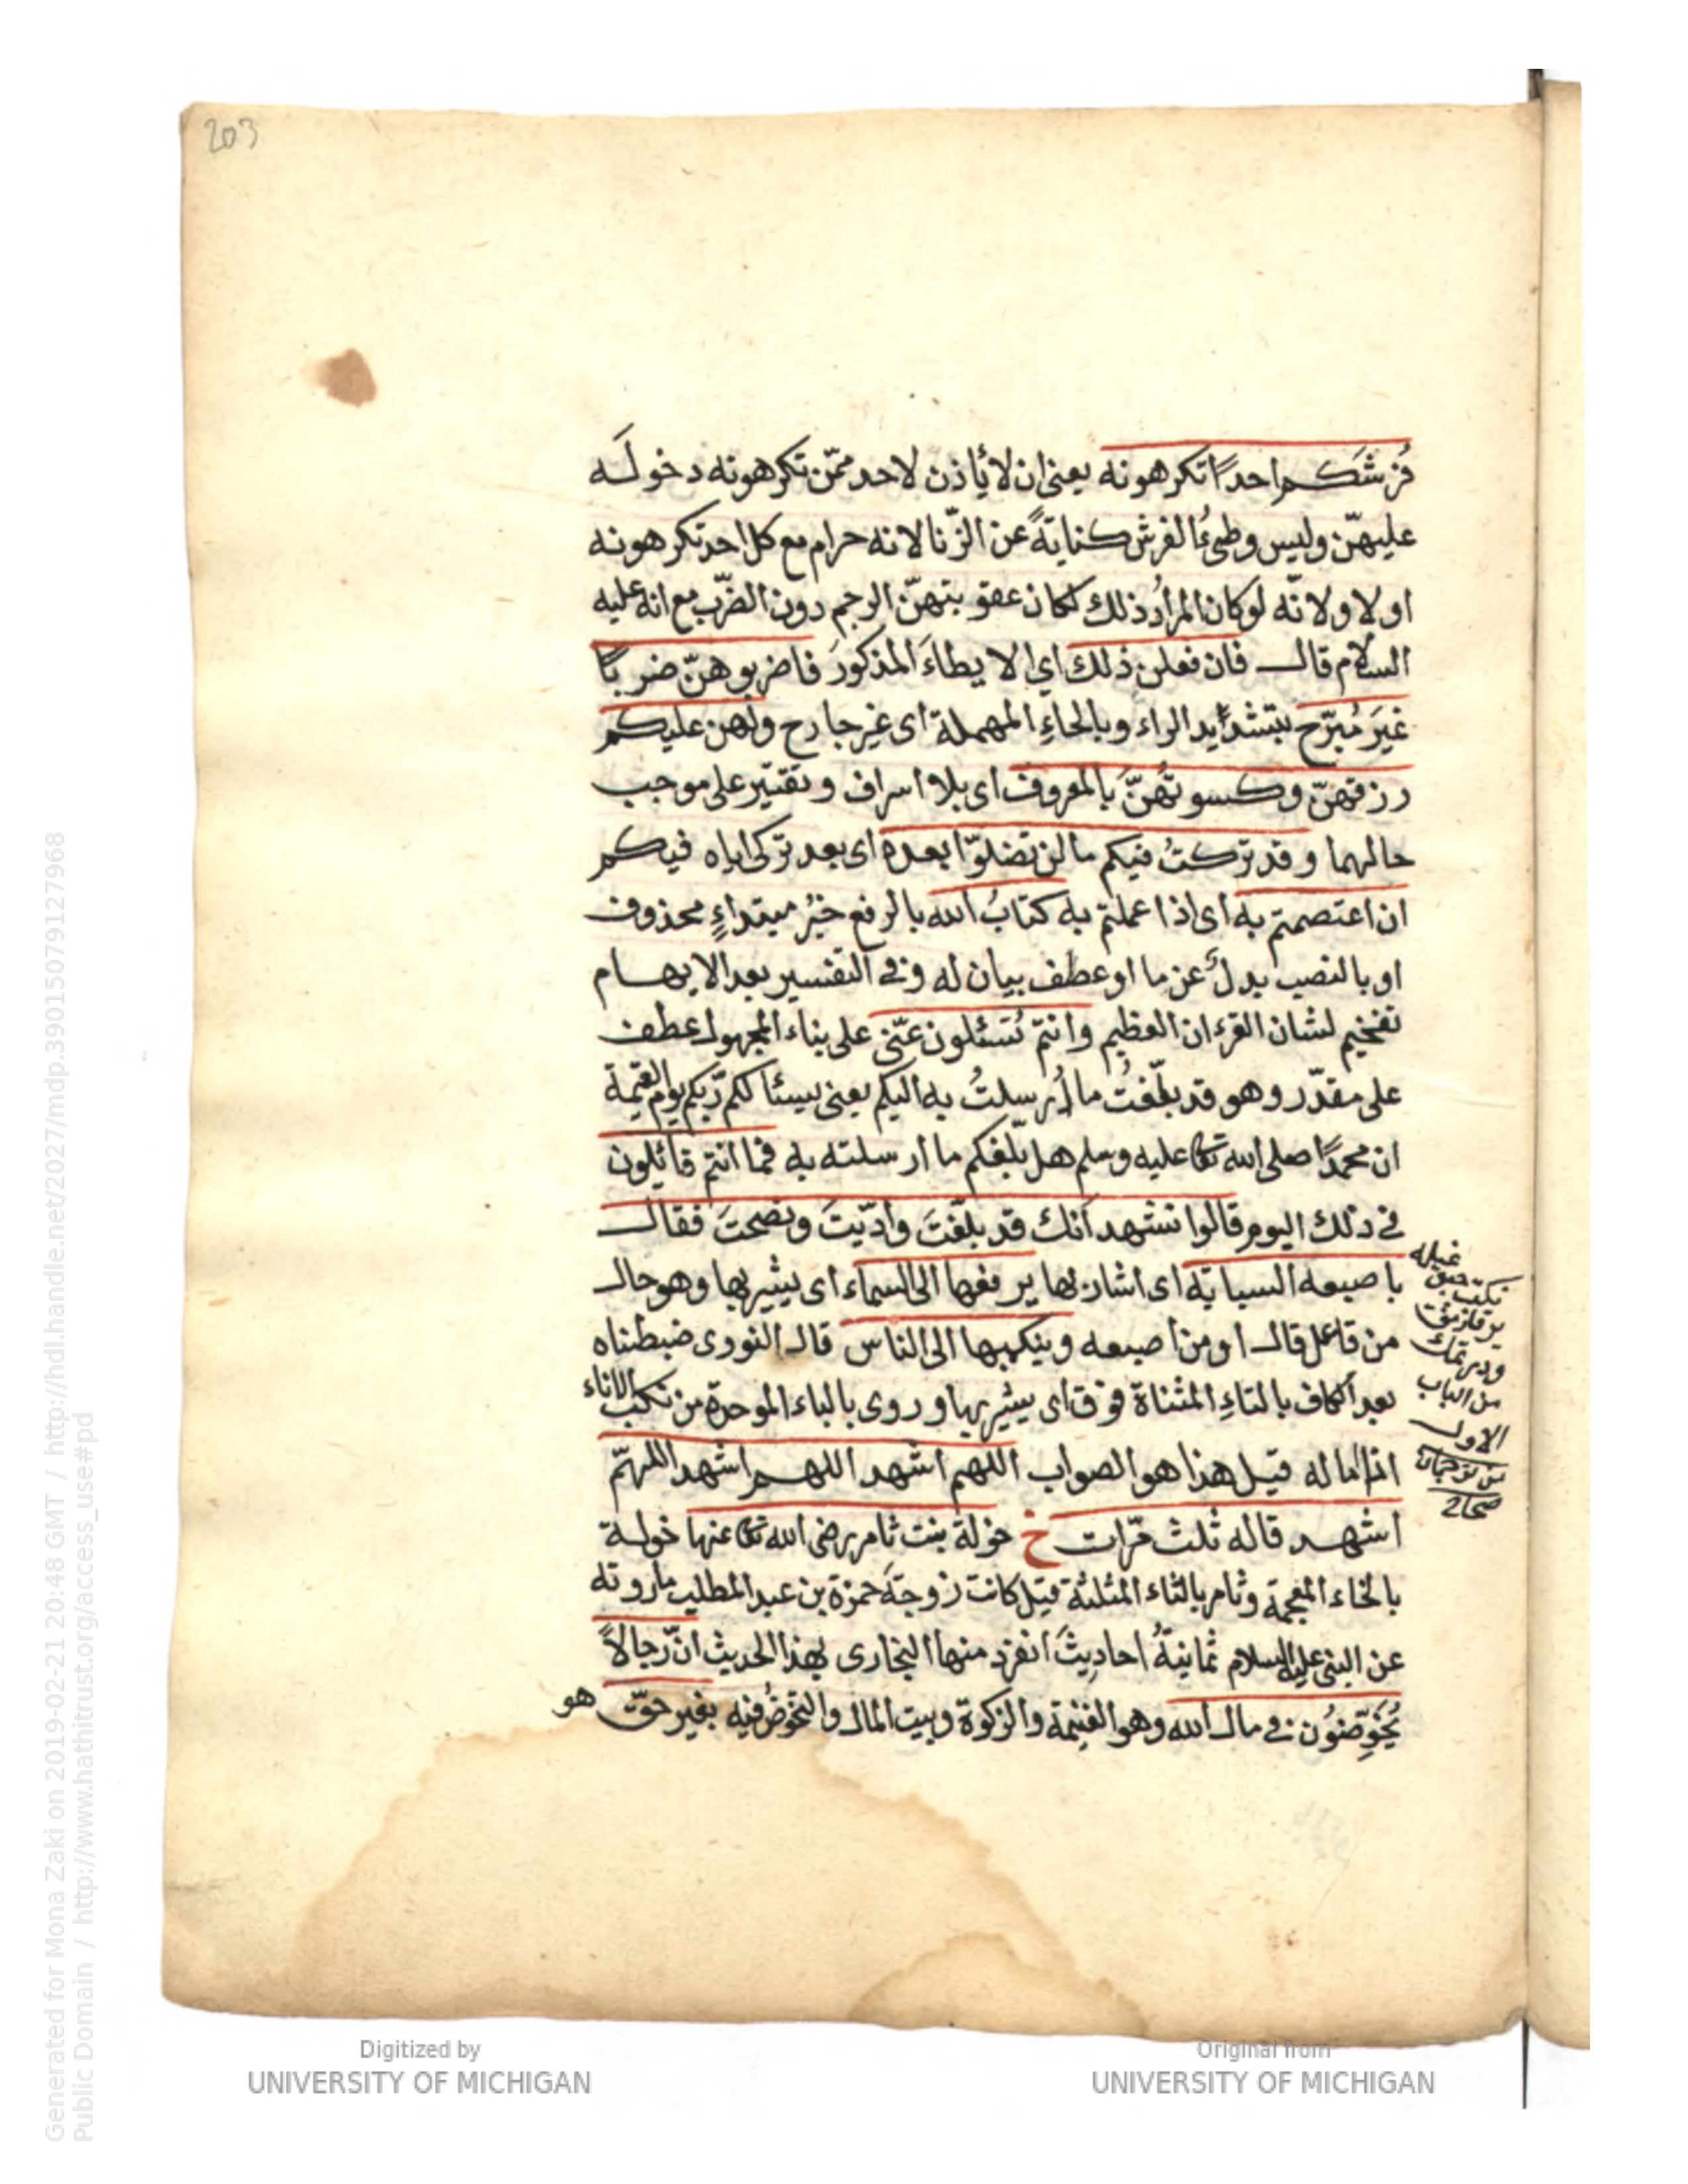 203
فُرُشَكم احدًا تكرهونه يعنى ان لا يأذن لاحد ممّن تكرهونه دخولَه
عليهنّ وليس وطىءُ الفرش كنايةً عن الزّنا لانه حرام مع كل احد تكرهونه
اولا ولانّه لو كان المرادُ ذلك لكان عقوبتهنّ الرجم دون الضّرب مع انه عليه
السلام قال فان فعلن ذلك اى الايطاءَ المذكورَ فاضربوهنّ ضربًا
غيَر مُبَرّح بتشديد الراء وبالحاءِ المهملة اى غير جارح ولهن عليكم
رزقهنّ وكسوتهُنّ بالمعروف اى بلا اسراف وتقتير على موجب
حالهما وقد تركتُ فيكم ما لن تضلوّا بعده اى بعد تركى اياه فيكم
ان اعتصمتم به اى اذا عملتم به كتابُ الله بالرفع خبرُ مبتداءٍ محذوف
او بالنصب بدلٌ عن ما او عطف بيان له وفى التفسير بعد الابهام
تفخيم لشان القرءان العظيم وانتم تُسئلون عنّى على بناء المجهول عطف
على مقدّر وهو قد بلّغتُ ما أُرسلتُ به اليكم يعنى يسئالكم ربّكم يوم القيمة
ان محمدًا صلى الله تعا عليه وسلم هل بلّغكم ما ارسلته به فما انتم قائلون
فى ذلك اليوم قالوا نشهد انك قد بلّغتَ وادّيتَ ونصحتَ فقال
باصبعه السبابة اى اشار بها يرفعها الى السماء اى يشير بها وهو حال
من فاعل قال او من اصبعه وينكبها الى الناس قال النووى ضبطناه
بعد الكاف بالتاءِ المثناة فوق اى يشير بها وروى بالباء الموحدة من نكب الاناء
اذا اماله قيل هذا هو الصواب اللهم اشهد اللهم اشهد اللهمّ
اشهد قاله ثلث مرّات خ خولة بنت ثامر رضى الله تعا عنها خولة
بالخاء المعجمة وثامر بالثاء المثلثة قيل كانت زوجةَ حمزة بن عبد المطلب ما روته
عن النبى عليه السلام ثمانيةُ احاديثَ انفرد منها البخارى بهذا الحديث انّ رجالاً
يُخَوِّضوُن فى مال الله وهو الغنيمة والزكوة وبيت المال والتخوّضُ فيه بغير حقّ هو
من الباب
الاول
Generated for Mona Zaki on 2019-02-21 20:48 GMT / http://hdl.handle.net/2027/mdp.39015079127968
Public Domain / http://www.hathitrust.org/access_use#pd
Digitized by
UNIVERSITY OF MICHIGAN
Original from
UNIVERSITY OF MICHIGAN